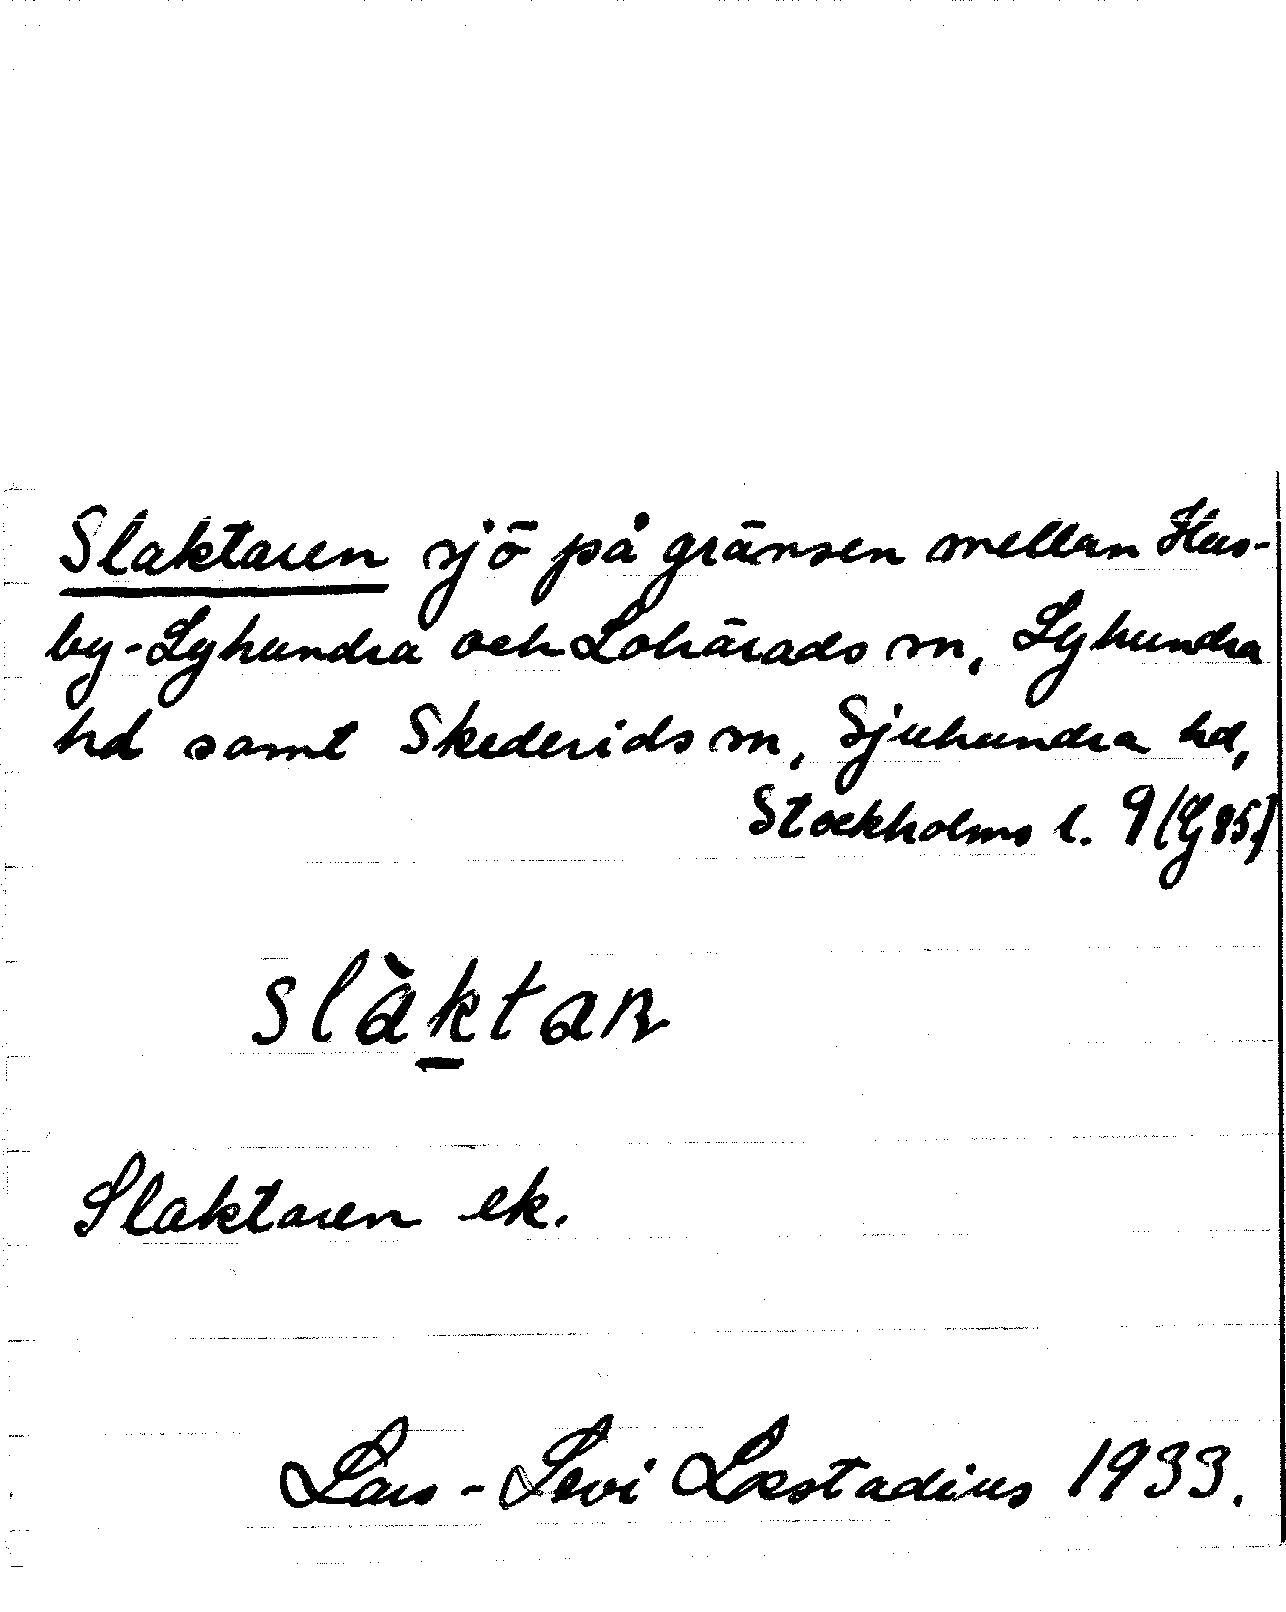 Slaktaren sjö på gränsen mellan Hus-
by-Lyhundra och Lohärads sn, Lyhundra
hd samt Skederids sn, Sjuhundra hd,
Stockholms l. 9 (Gj 85)
slàktaʀ
Slaktaren ek.
Lars-Levi Læstadius 1933.